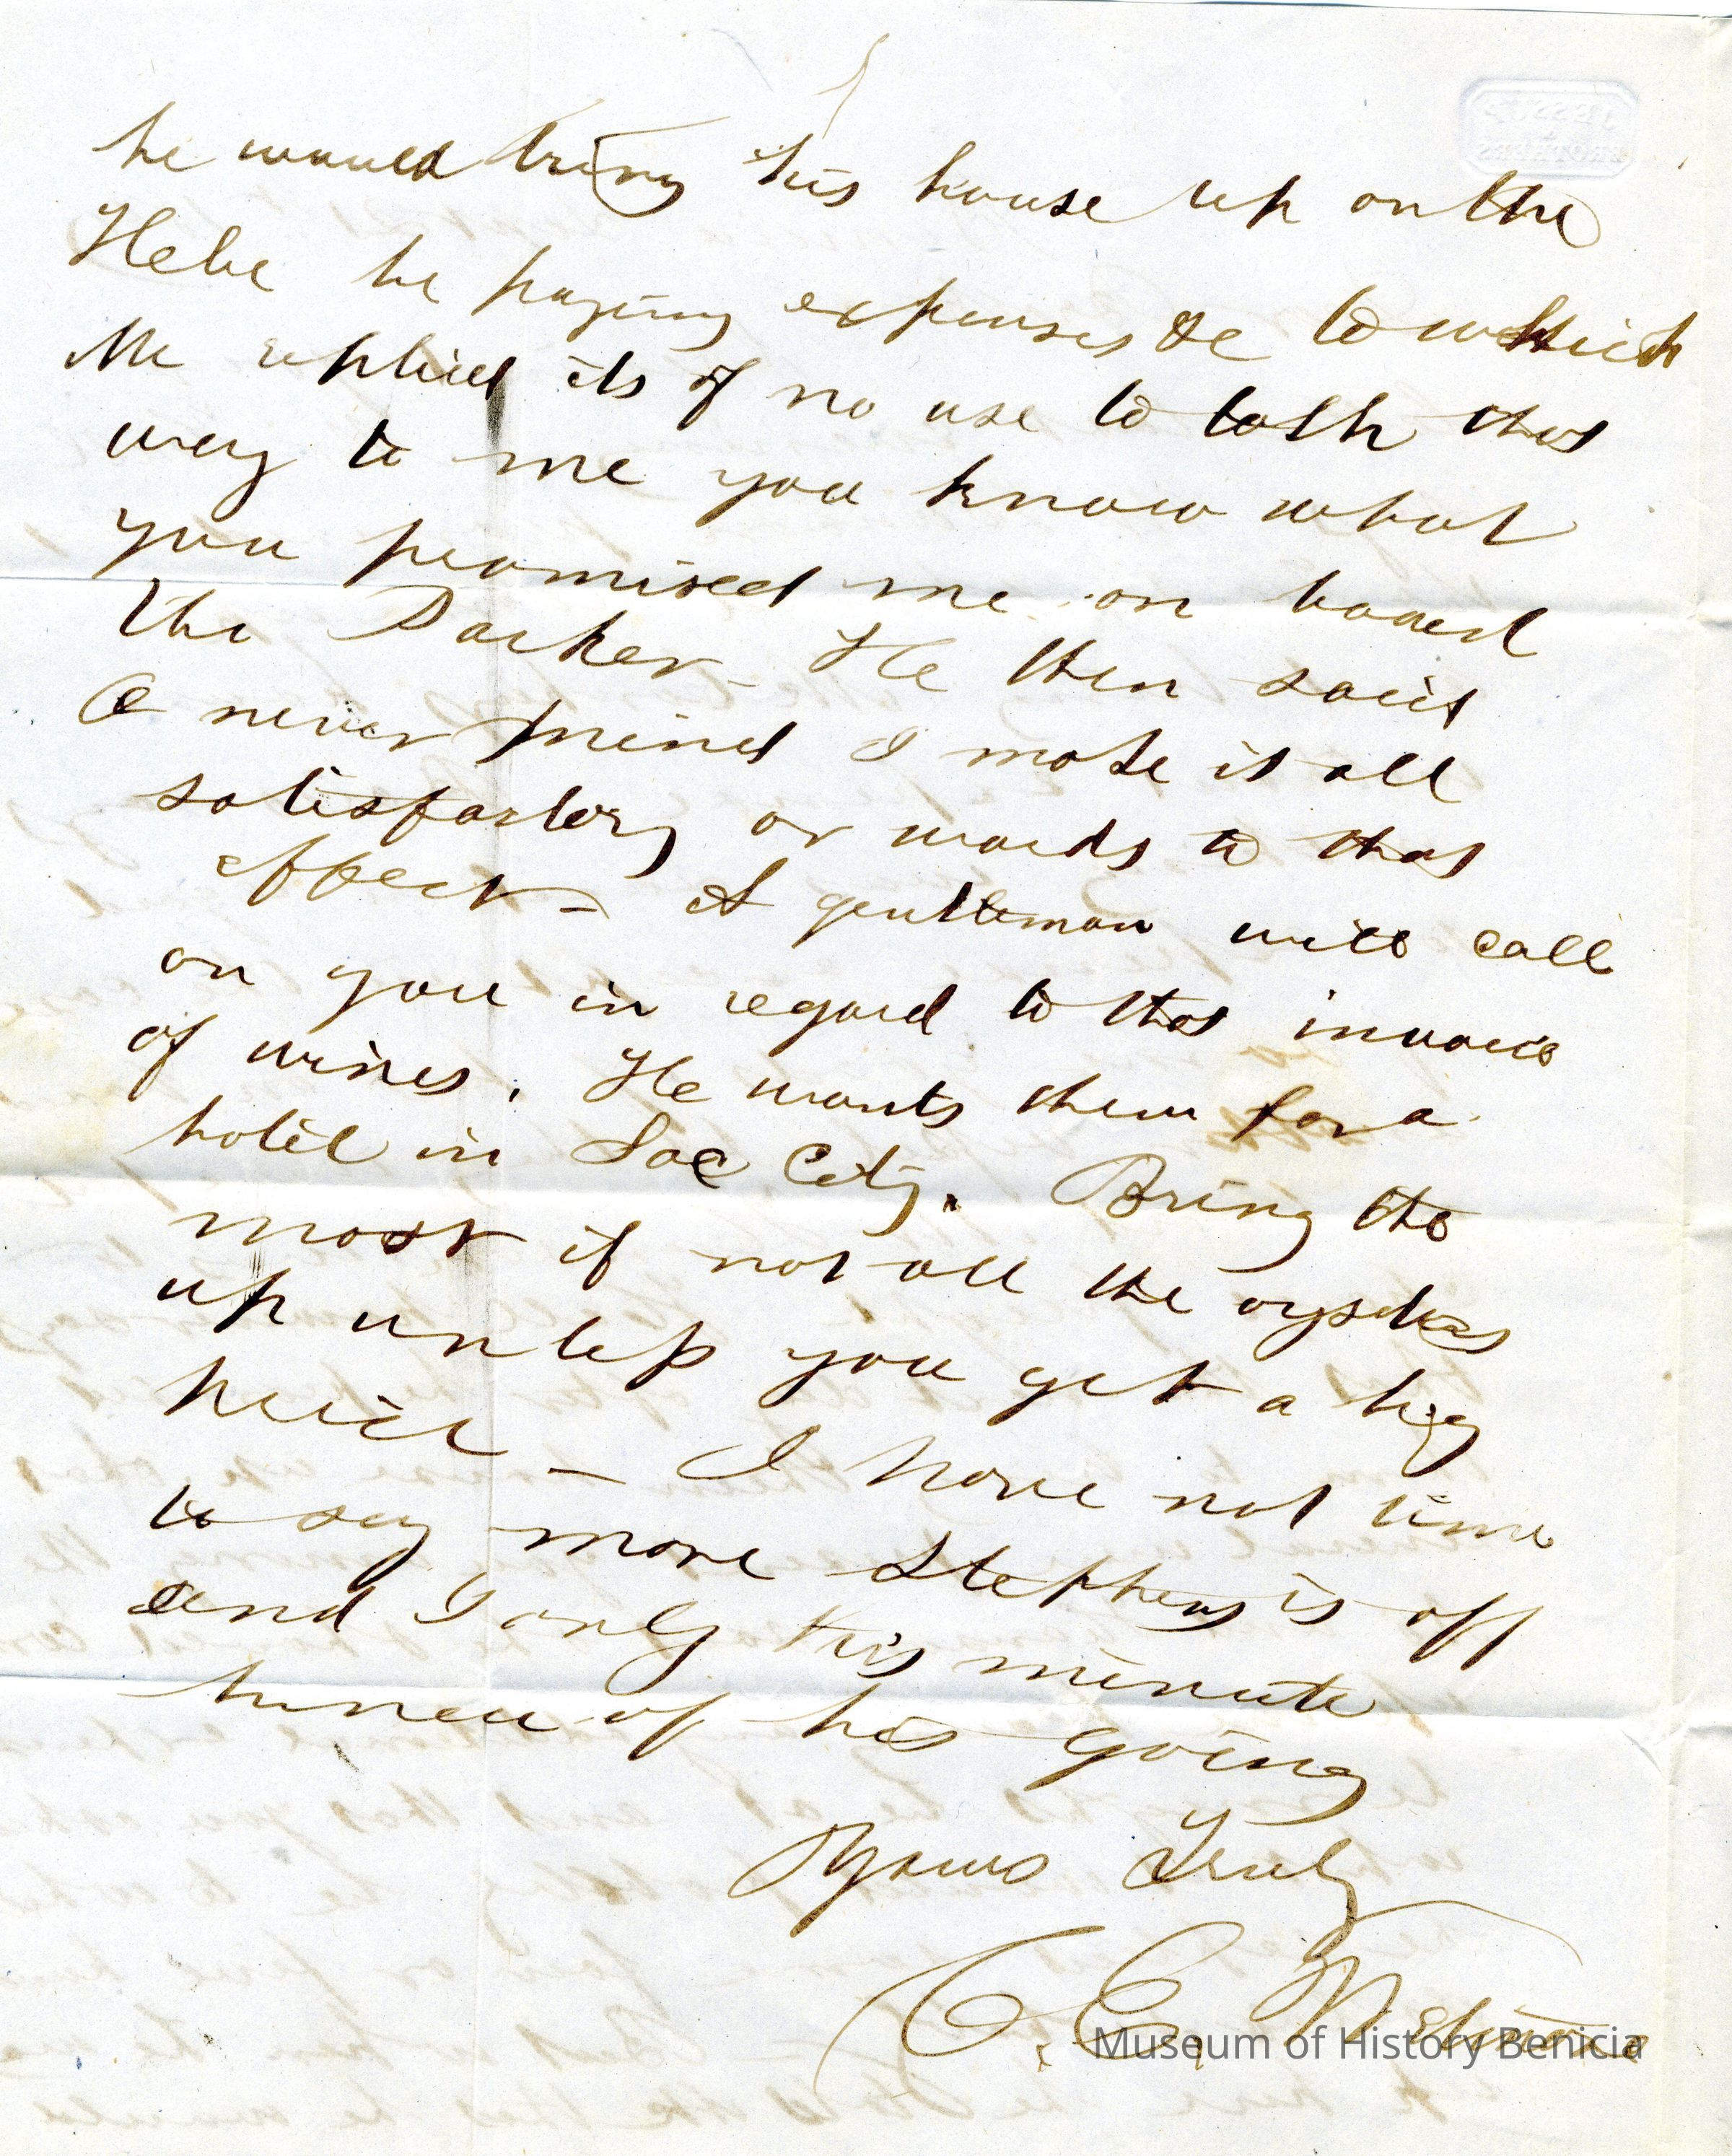 he would bring his house up on the
Hebe he paying expenses &c to which
Mc replied its of no use to talk that
way to me you know what
you promised me on board
the Packer – He then said
O never mind I make it all
satisfactory or words to that
effect – A gentleman will call
on you in regard to that invoice
of wines. He wants them for a
hotel in Sac City. Bring the
most if not all the oysters
up unless you get a big
price – I have not time
to say more Stephens is off
and I only this minute
knew of his going
Yours Truly
C. C.
Museum of History Benicia
BROTHERS